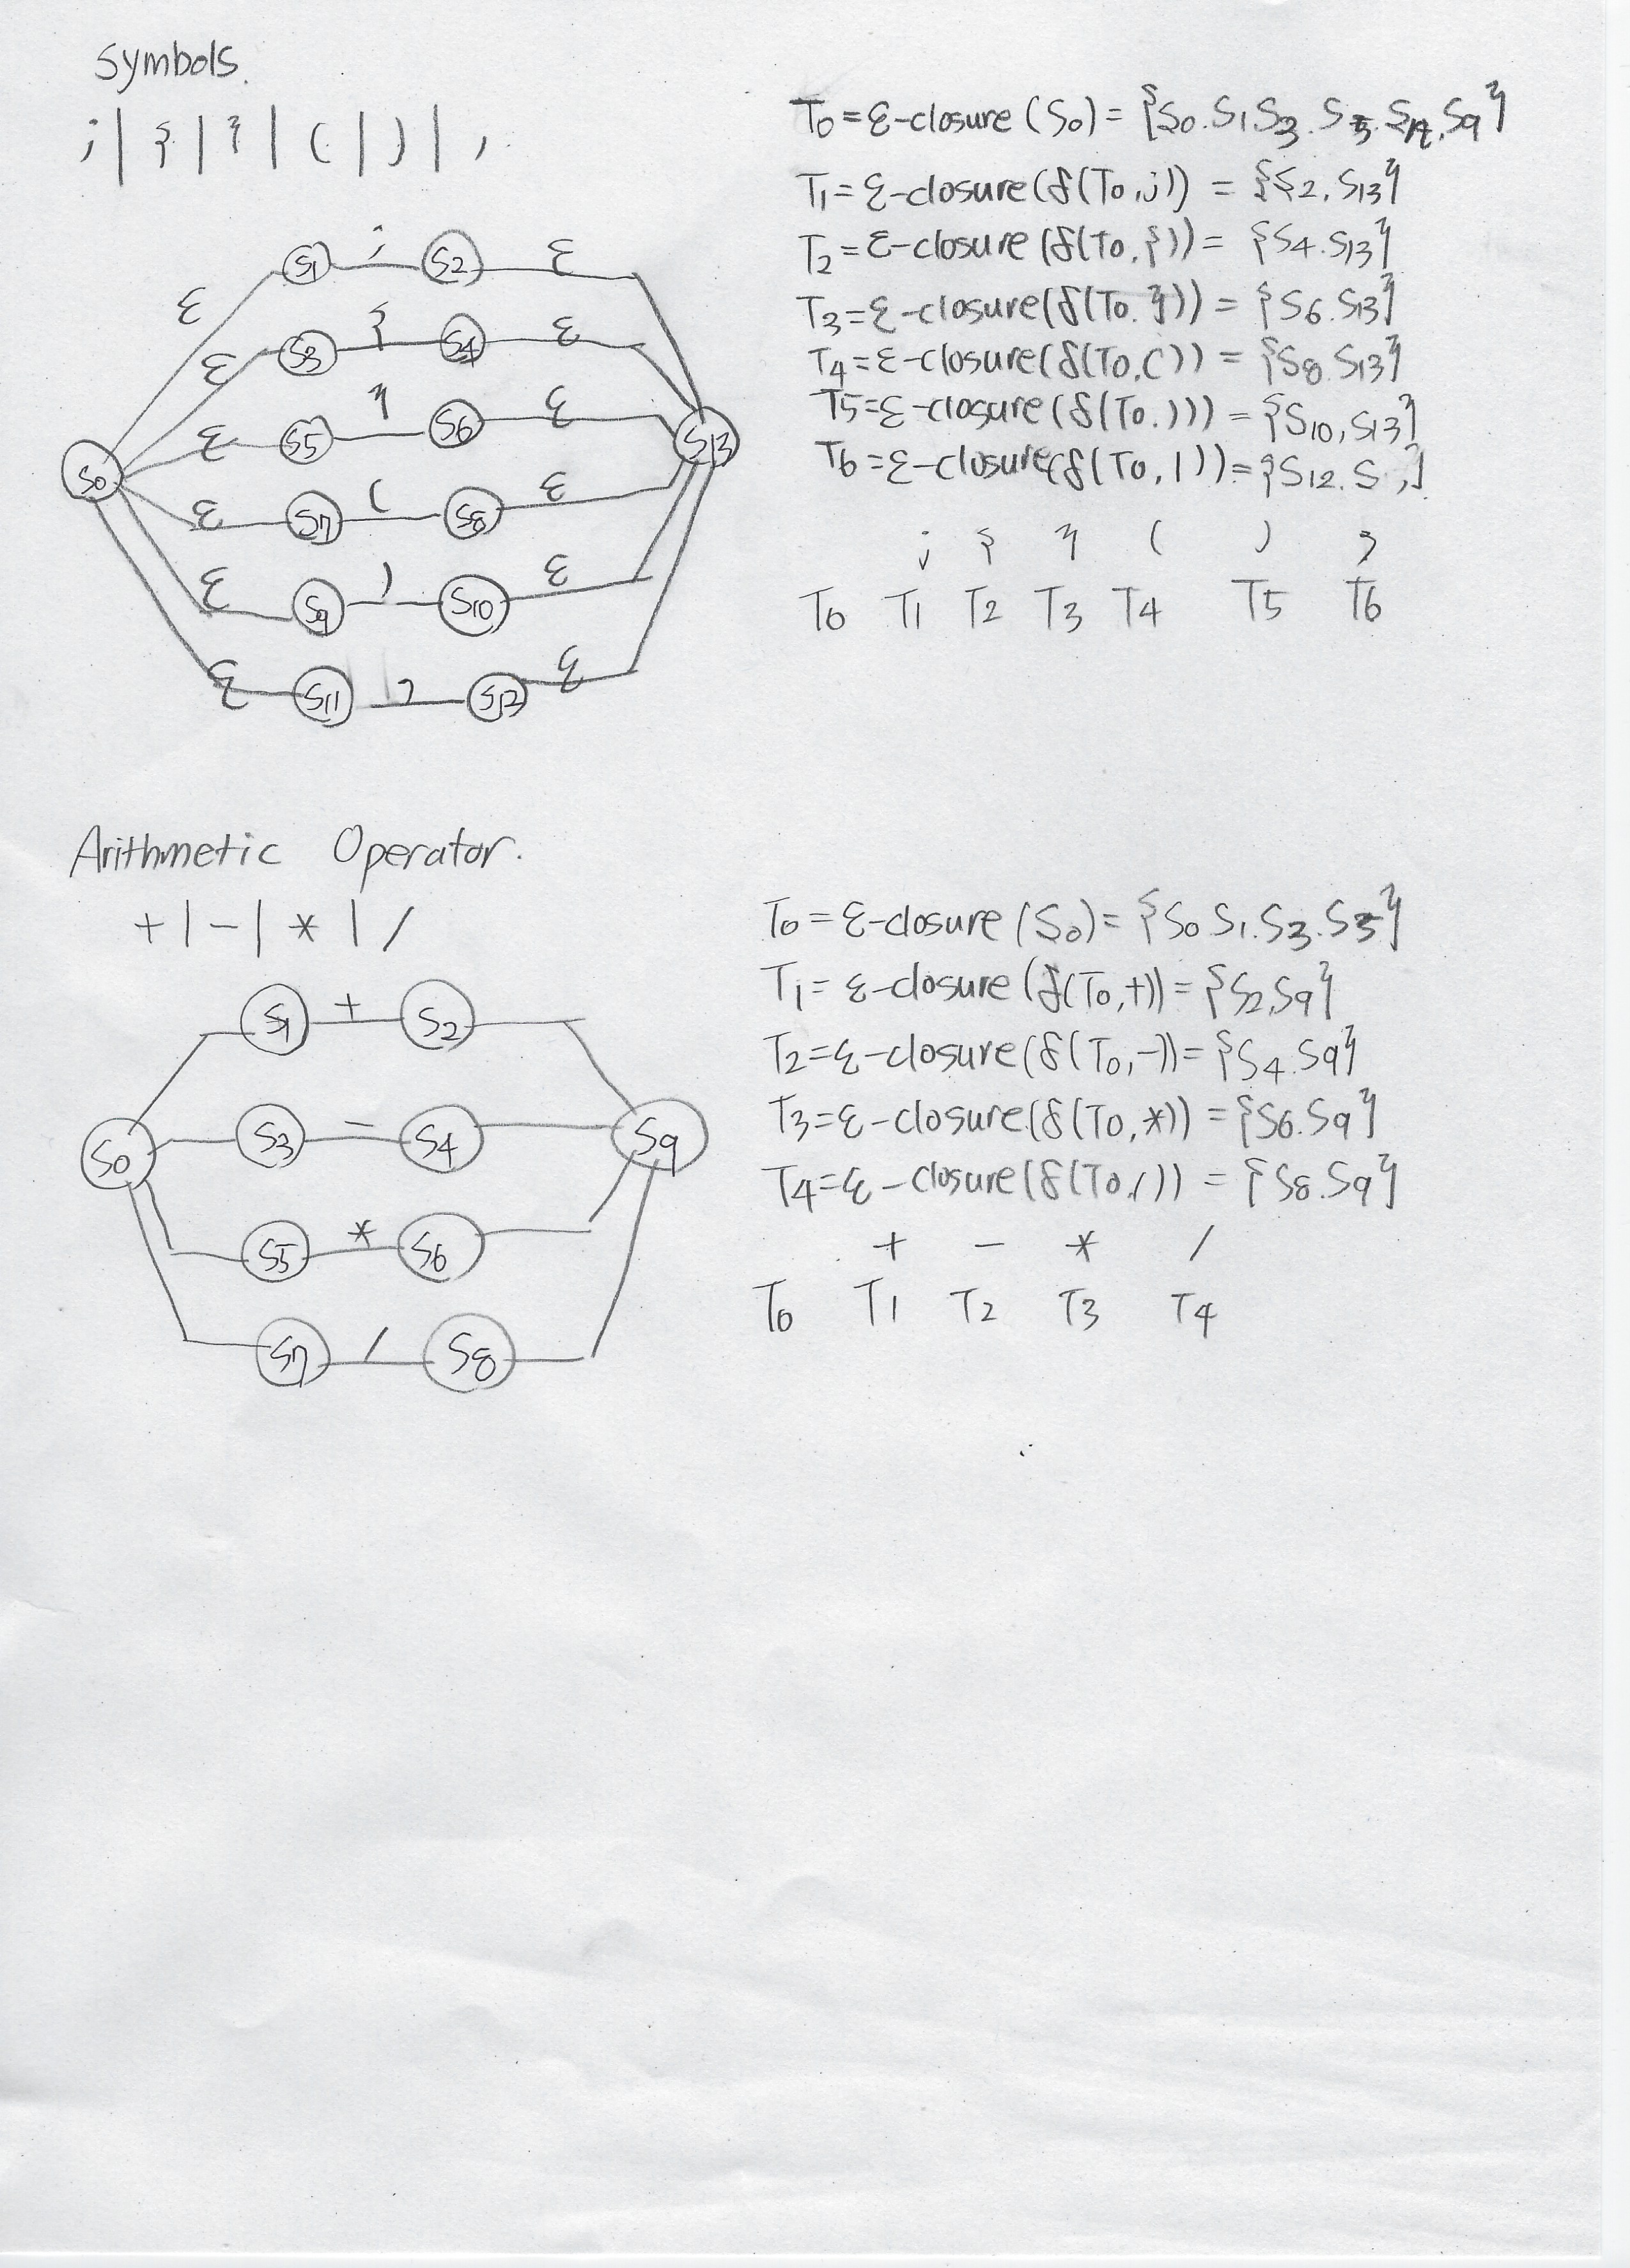 Symbols.
; | { | } | ( | ) | ,
S1 ; S2 ε
ε
S3 { S4 ε
ε
S5 } S6 ε
ε
S0
S13
ε S7 ( S8 ε
ε S9 ) S10 ε
ε S11 , S12 ε
T0 = ε-closure (S0) = {S0. S1 S3. S5. S7, S9}
T1 = ε-closure(δ(T0, ;)) = {S2, S13}
T2 = ε-closure (δ(T0, {)) = {S4. S13}
T3 = ε-closure(δ(T0. })) = {S6. S13}
T4 = ε-closure(δ(T0, ()) = {S8. S13}
T5 = ε-closure(δ(T0, ))) = {S10, S13}
T6 = ε-closure(δ(T0, )) = {S12. S
; { } ( ) ,
T0 T1 T2 T3 T4 T5 T6
Arithmetic Operator.
+ | - | * | /
S1 + S2
S0 S3 - S4 S9
S5 * S6
S7 / S8
T0 = ε-closure (S0) = {S0 S1. S3. S5}
T1 = ε-closure (δ(T0, +)) = {S2, S9}
T2 = ε-closure(δ(T0, -)) = {S4. S9}
T3 = ε-closure(δ(T0, *)) = {S6. S9}
T4 = ε-closure(δ(T0, /)) = {S8. S9}
+ - * /
T0 T1 T2 T3 T4